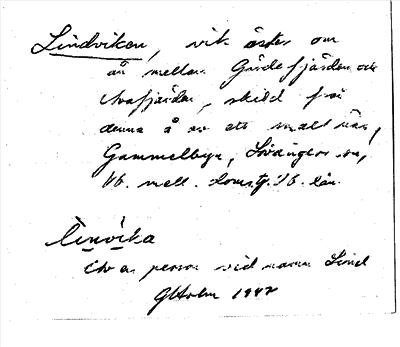 Lindviken, vik öster om
ån mellan Gärdefjärden och
Avafjärden, skild från
denna å av ett smalt näs,
Gammelbyn, Lövångers sn,
Vb. mell. domstg. Vb. län.
linvika
Av en person vid namn Lind
GHolm 1942